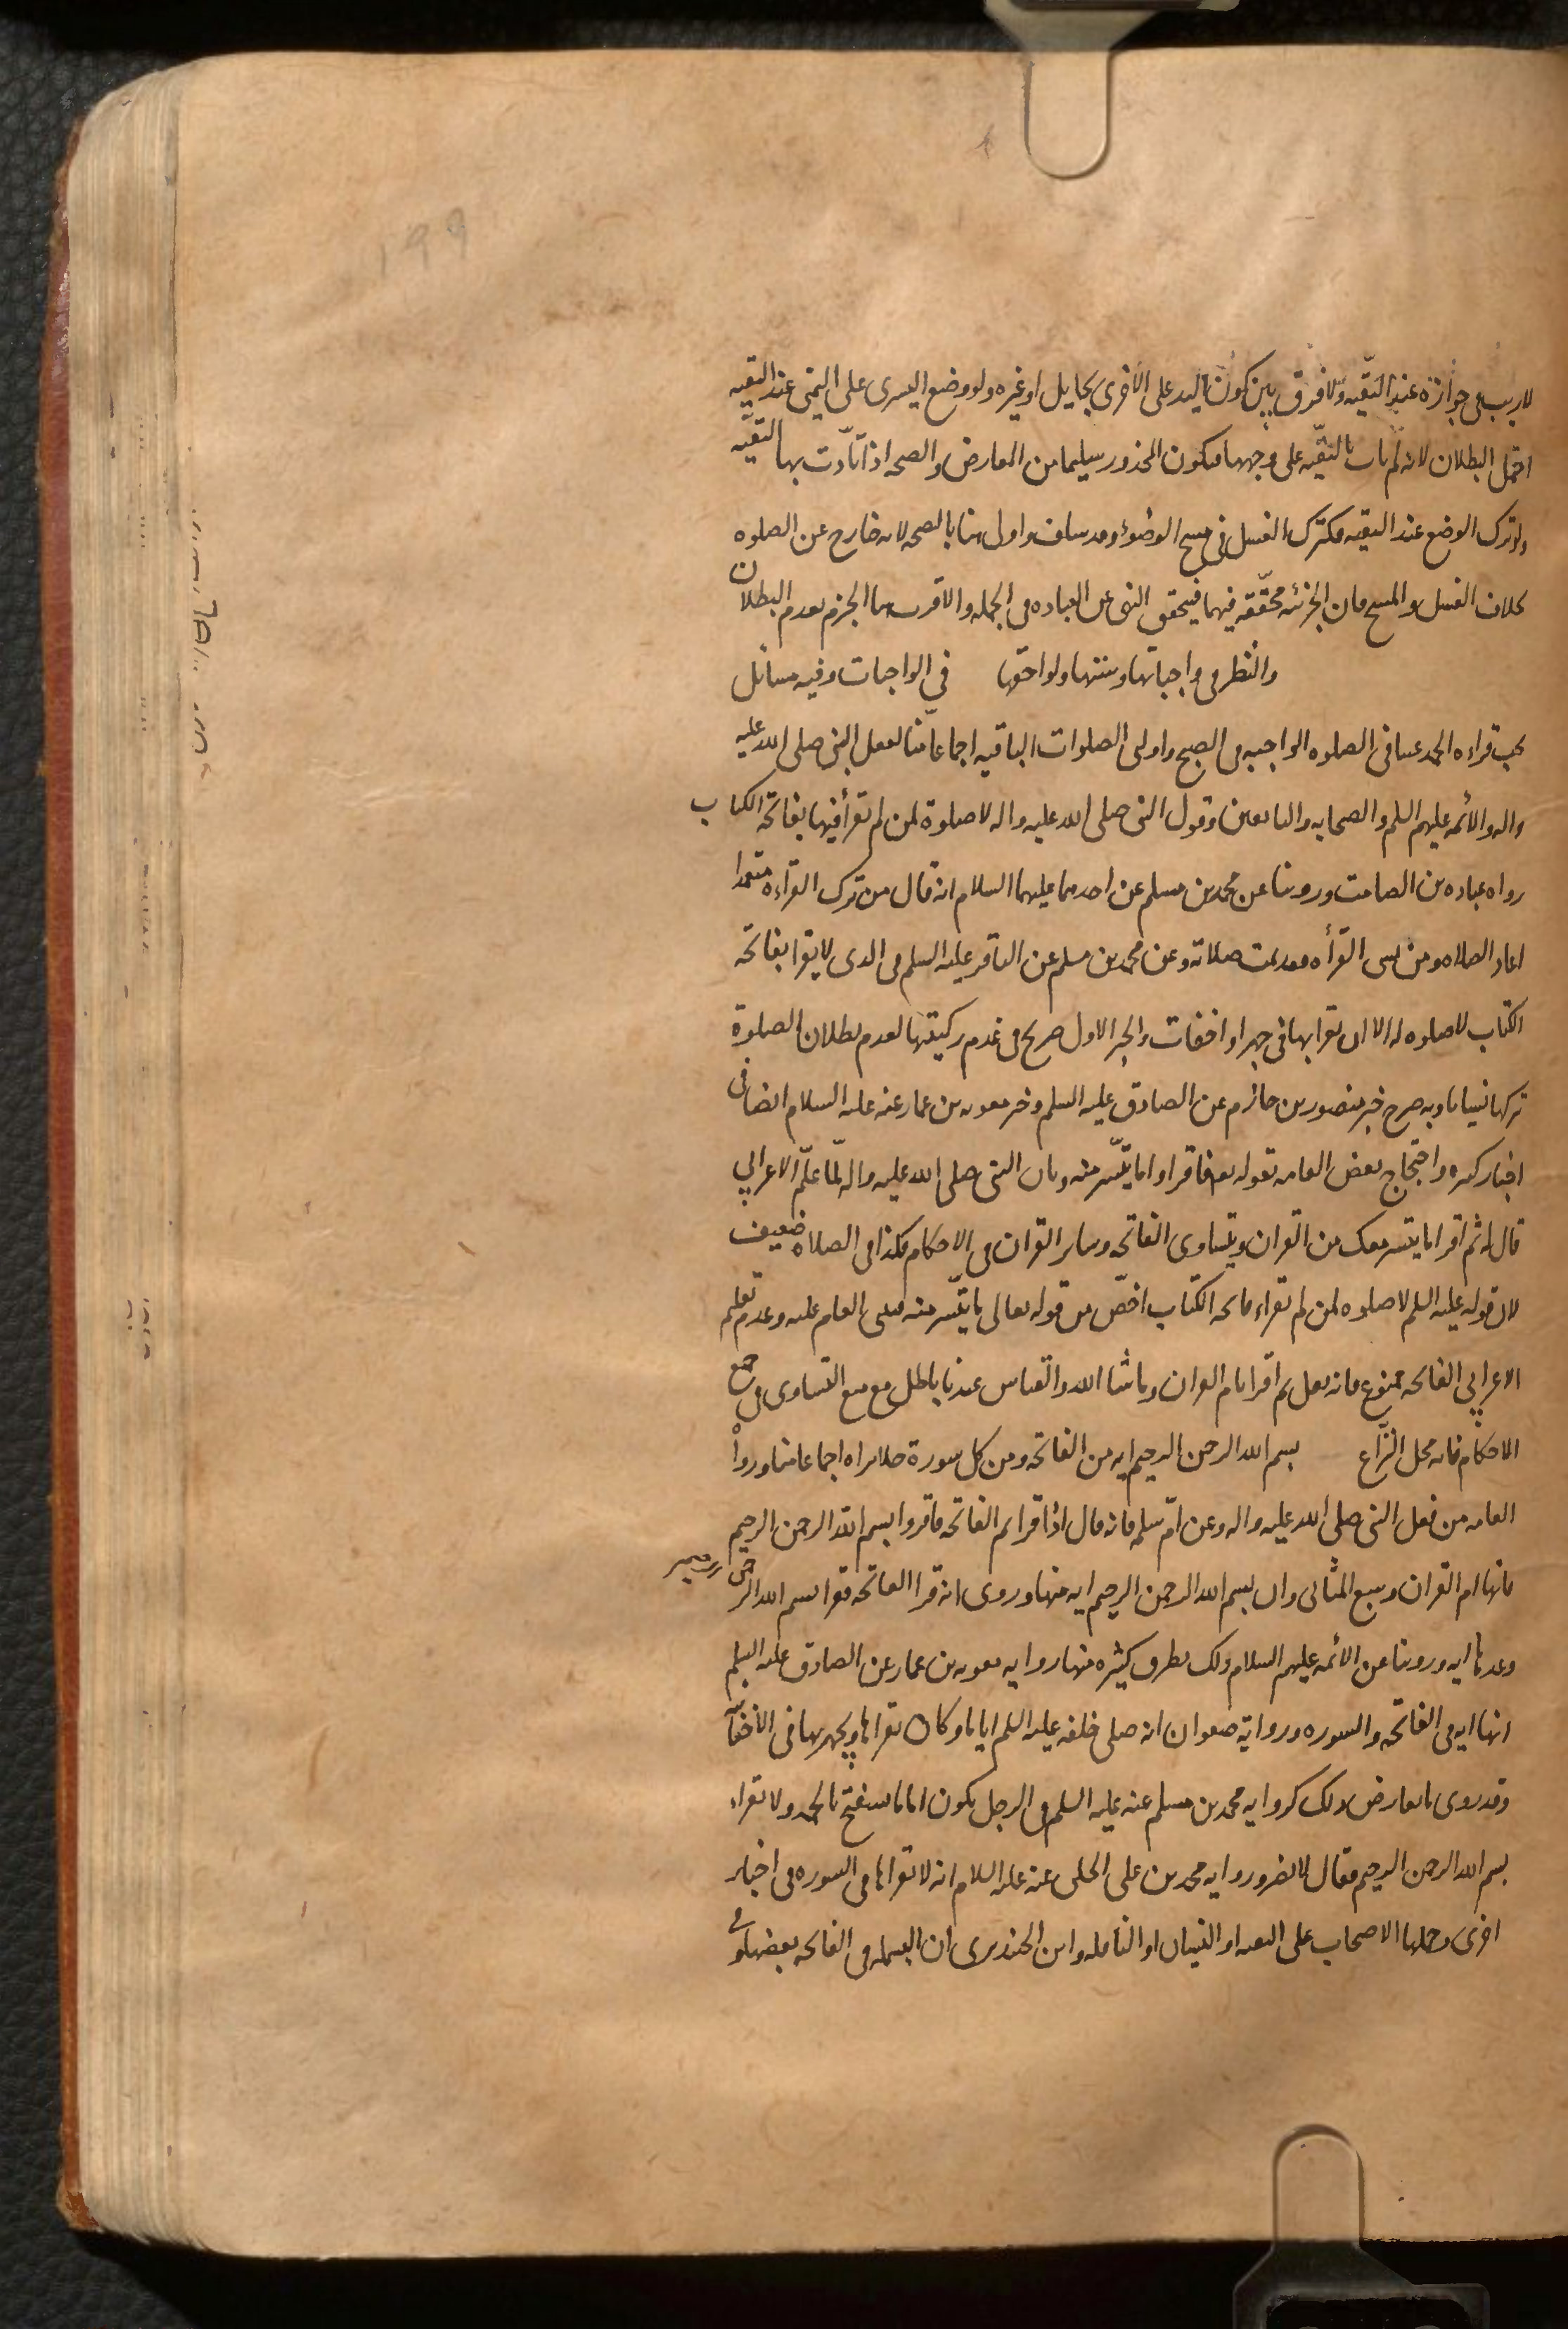 لا ريب في جوازه عند التقيه ولا فرق بين كون اليد على الاخرى بحايل او غيره ولو وضع اليسرى على اليمنى عند التقيه
احتمل البطلان لانه لم يات بالتقيه على وجهها فيكون المحذور سليما من المعارض والصحه اذا تادت بها التقيه
ولو ترك الوضع عند التقيه فكترك الغسل في مسح الوضوء وقد سلف واولى هنا بالصحه لانه خارج عن الصلوه
بخلاف الغسل والمسح فان الجزئيه محققه فيهما فيتحقق النهى عن العباده في الجمله والاقرب هنا الجزم بعدم البطلان
والنظر في واجباتها وسننها ولواحقها في الواجبات وفيه مسائل
يجب قراءه الحمد عينا في الصلوه الواجبه في الصبح واولى الصلوات الباقيه اجماعا منا لفعل النبى صلى الله عليه
واله والائمه عليهم السلم والصحابه والتابعين وقول النبى صلى الله عليه واله لا صلوة لمن لم يقرأ فيها بفاتحة الكتاب
رواه عباده بن الصامت وروينا عن محمد بن مسلم عن احدهما عليهما السلام انه قال من ترك القراءة متعمدا
اعاد الصلاه ومن نسى القرأه فقد تمت صلاته وعن محمد بن مسلم عن الباقر عليه السلم في الذى لا يقرا بفاتحه
الكتاب لا صلوه له الا ان يقرا بها في جهر او اخفات والخبر الاول صريح في عدم ركنيتها لعدم بطلان الصلوة
تركها نسيانا وبه صرح خبر منصور بن حازم عن الصادق عليه السلم وخبر معويه بن عمار عنه عليه السلام ايضا في
اخبار كثيره واحتجاج بعض العامه بقوله تع فاقراوا ما تيسر منه وبان النبى صلى الله عليه واله لما علم الاعرابي
قال له ثم اقرا ما تيسر معك من القران وبتساوى الفاتحه وساير القران في الاحكام فكذا في الصلاه ضعيف
لان قوله عليه السلم لا صلوه لمن لم يقراء فاتحه الكتاب اخص من قوله تعالى ما تيسر منه فيبنى العام عليه وعدم تعلم
الاعرابي الفاتحه ممنوع فانه نقل ثم اقرا بام القران وما شا الله والقياس عندنا باطل مع منع التساوى في جميع
الاحكام فانه محل النزاع بسم الله الرحمن الرحيم ايه من الفاتحه ومن كل سورة خلا براه اجماعا منا ورواه
العامه من فعل النبى صلى الله عليه واله وعن ام سلمه فانه قال اذا قراتم الفاتحه فاقروا بسم الله الرحمن الرحيم
فانها ام القران وسبع المثانى وان بسم الله الرحمن الرحيم ايه منها وروى انه قرا الفاتحه فقرا بسم الله الرحمن الرحيم
وعدها ايه وروينا عن الائمه عليهم السلام ذلك بطرق كثيره منها روايه معويه بن عمار عن الصادق عليه السلم
انها ايه في الفاتحه والسوره ورواية صفوان انه صلى خلفه عليه السلم اياما وكان يقراها ويجهر بها في الاخفاتيه
وقد روى ما يعارض ذلك كروايه محمد بن مسلم عنه عليه السلم في الرجل يكون اماما يستفتح بالحمد ولا يقراء
بسم الله الرحمن الرحيم فقال لا يضر وروايه محمد بن على الحلبى عنه عليه السلام انه لا يقراها في السوره في اخبار
اخرى وحملها الاصحاب على التقيه او النسيان او النافله وابن الجنيد يرى ان البسمله في الفاتحه بعضها وفى